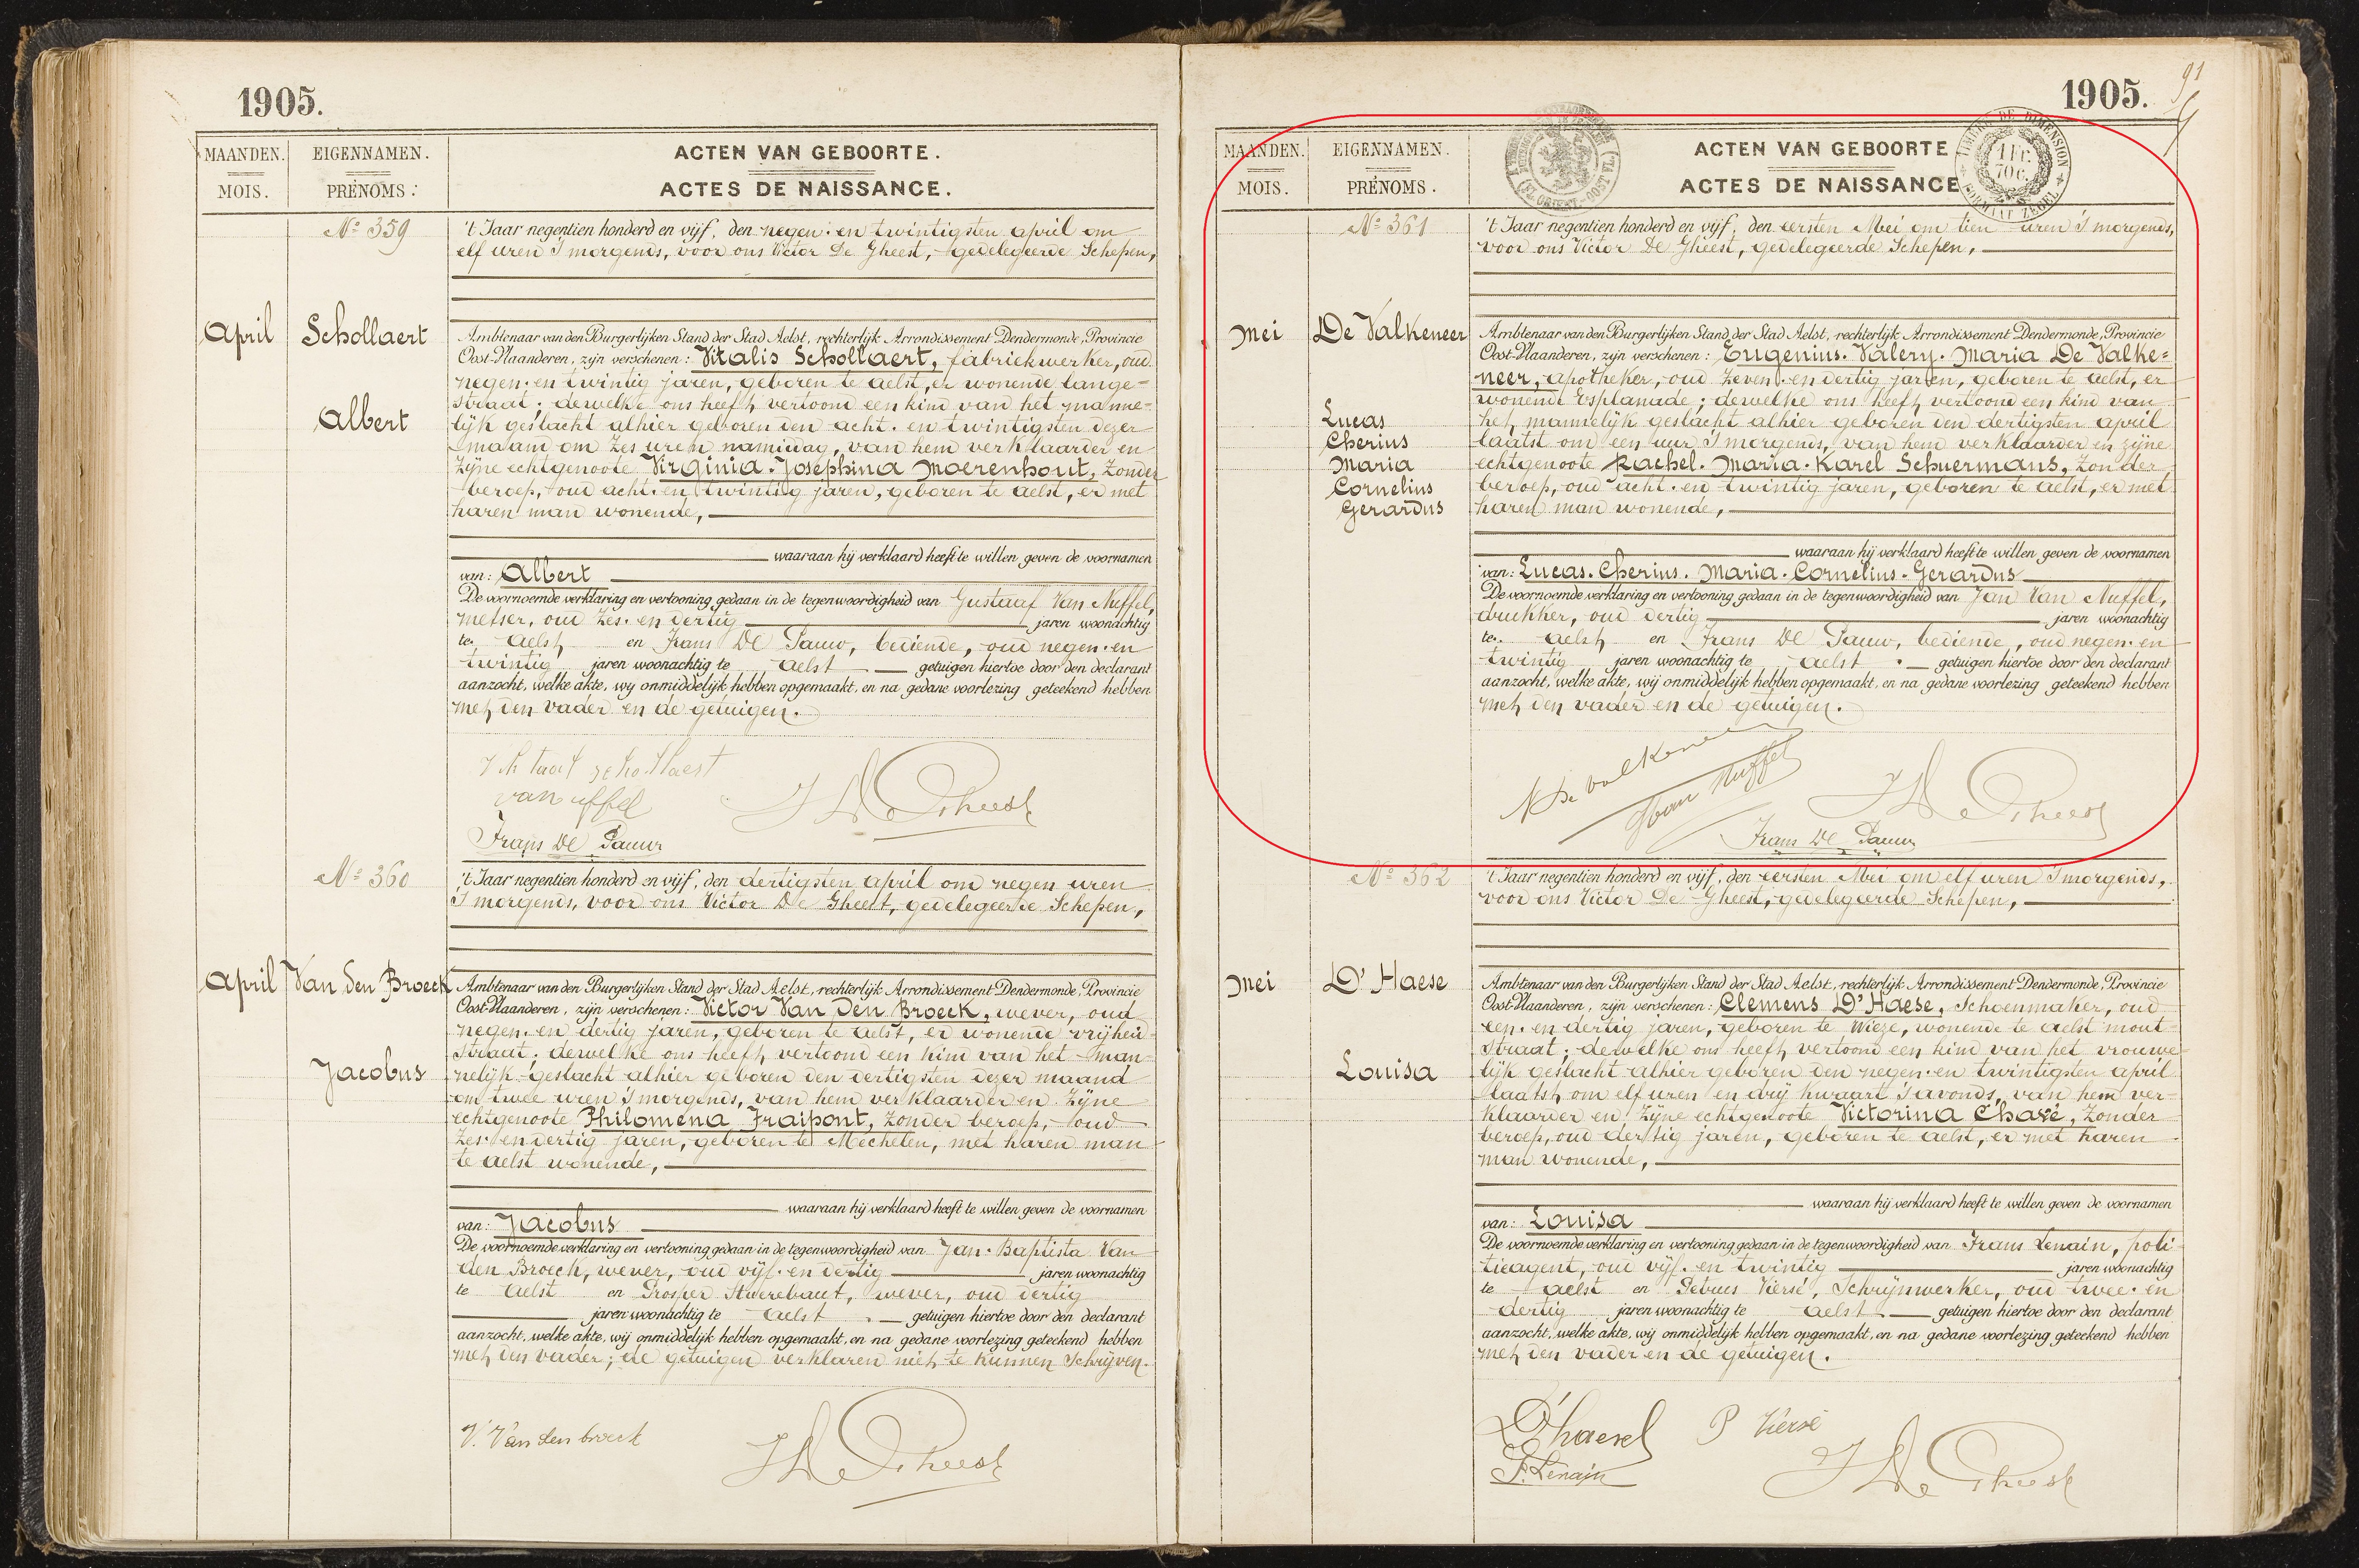 1905.
MAANDEN.
MOIS.
EIGENNAMEN.
PRÉNOMS:
ACTEN VAN GEBOORTE.
ACTES DE NAISSANCE.
No 359
't Jaar negentien honderd en vijf, den negen-en twintigsten april om
elf uren 's morgends, voor ons Victor De Gheest, gedelegeerde Schepen,
April
Schollaert
Albert
Ambtenaar van den Burgerlijken Stand der Stad Aelst, rechterlijk Arrondissement Dendermonde, Provincie
Oost-Vlaanderen, zijn verschenen: Vitalis Schollaert, fabriekwerker, oud
negen-en twintig jaren, geboren te Aelst, er wonende Lange=
straat; dewelke ons heeft vertoond een kind van het manne=
lijk geslacht alhier geboren den acht-en twintigsten dezer
maand om zes uren namiddag, van hem verklaarder en
zijne echtgenoote Virginia-Josephina Moerenhout, zonder
beroep, oud acht-en twintig jaren, geboren te Aelst, er met
haren man wonende,
waaraan hij verklaard heeft te willen geven de voornamen
van: Albert
De voornoemde verklaring en vertooning gedaan in de tegenwoordigheid van Gustaaf Van Nuffel,
metser, oud zes-en dertig jaren woonachtig
te Aelst en Frans De Pauw, bediende, oud negen-en
twintig jaren woonachtig te Aelst getuigen hiertoe door den declarant
aanzocht, welke akte, wij onmiddelijk hebben opgemaakt, en na gedane voorlezing geteekend hebben
met den vader en de getuigen.
van uffel
Frans De Pauw
V De Gheest
No 360
't Jaar negentien honderd en vijf, den dertigsten april om negen uren
's morgends, voor ons Victor De Gheest, gedelegeerde Schepen,
April
Van den Broeck
Jacobus
Ambtenaar van den Burgerlijken Stand der Stad Aelst, rechterlijk Arrondissement Dendermonde, Provincie
Oost-Vlaanderen, zijn verschenen: Victor Van Den Broeck, wever, oud
negen-en dertig jaren, geboren te Aelst, er wonende vrijheid-
straat; dewelke ons heeft vertoond een kind van het man-
nelijk geslacht alhier geboren den dertigsten dezer maand
om twee uren 's morgends, van hem verklaarder en zijne
echtgenoote Philomena Fraipont, zonder beroep, oud
zes-en dertig jaren, geboren te Mechelen, met haren man
te Aelst wonende,
waaraan hij verklaard heeft te willen geven de voornamen
van: Jacobus
De voornoemde verklaring en vertooning gedaan in de tegenwoordigheid van Jan-Baptista Van
den Broeck, wever, oud vijf-en dertig jaren woonachtig
te Aelst en Prosper wever, oud dertig
jaren woonachtig te Aelst getuigen hiertoe door den declarant
aanzocht, welke akte, wij onmiddelijk hebben opgemaakt, en na gedane voorlezing geteekend hebben
met den vader; de getuigen verklaren niet te kunnen schrijven.
V. Van den broeck
V De Gheest
91
1905.
MAANDEN.
MOIS.
EIGENNAMEN.
PRÉNOMS.
ACTEN VAN GEBOORTE
ACTES DE NAISSANCE
TIMBRE DE DIMENSION
1 FR. 70 C.
FORMAAT ZEGEL
No 361
't Jaar negentien honderd en vijf, den eersten Mei om tien uren 's morgends,
voor ons Victor De Gheest, gedelegeerde Schepen,
Mei
De Valkeneer
Lucas
Cherius
Maria
Cornelius
Gerardus
Ambtenaar van den Burgerlijken Stand der Stad Aelst, rechterlijk Arrondissement Dendermonde, Provincie
Oost-Vlaanderen, zijn verschenen: Eugenius-Valery-Maria De Valke=
neer, apotheker, oud zeven-en dertig jaren, geboren te Aelst, er
wonende Esplanade; dewelke ons heeft vertoond een kind van
het mannelijk geslacht alhier geboren den dertigsten april
laatst om een uur 's morgends, van hem verklaarder en zijne
echtgenoote Rachel-Maria-Karel Schuermans, zonder
beroep, oud acht-en twintig jaren, geboren te Aelst, er met
haren man wonende,
waaraan hij verklaard heeft te willen geven de voornamen
van: Lucas-Cherius-Maria-Cornelius-Gerardus
De voornoemde verklaring en vertooning gedaan in de tegenwoordigheid van Jan Van Nuffel,
drukker, oud dertig jaren woonachtig
te Aelst en Frans De Pauw, bediende, oud negen-en
twintig jaren woonachtig te Aelst getuigen hiertoe door den declarant
aanzocht, welke akte, wij onmiddelijk hebben opgemaakt, en na gedane voorlezing geteekend hebben
met den vader en de getuigen.
De valkeneer
van Nuffel
V De Gheest
Frans De Pauw
No 362
't Jaar negentien honderd en vijf, den eersten Mei om elf uren 's morgends,
voor ons Victor De Gheest, gedelegeerde Schepen,
Mei
D'Haese
Louisa
Ambtenaar van den Burgerlijken Stand der Stad Aelst, rechterlijk Arrondissement Dendermonde, Provincie
Oost-Vlaanderen, zijn verschenen: Clemens D'Haese, schoenmaker, oud
een-en dertig jaren, geboren te Wieze, wonende te Aelst Mout-
straat; dewelke ons heeft vertoond een kind van het vrouwe-
lijk geslacht alhier geboren den negen-en twintigsten april
laatst om elf uren en drij kwaart 's avonds, van hem ver-
klaarder en zijne echtgenoote Victorina Chavé, zonder
beroep, oud dertig jaren, geboren te Aelst, er met haren
man wonende,
waaraan hij verklaard heeft te willen geven de voornamen
van: Louisa
De voornoemde verklaring en vertooning gedaan in de tegenwoordigheid van Frans Lenain, poli-
tieagent, oud vijf-en twintig jaren woonachtig
te Aelst en Petrus Viersé, schrijnwerker, oud twee-en
dertig jaren woonachtig te Aelst getuigen hiertoe door den declarant
aanzocht, welke akte, wij onmiddelijk hebben opgemaakt, en na gedane voorlezing geteekend hebben
met den vader en de getuigen.
D'haese
P Viersé
F. Lenain
V De Gheest